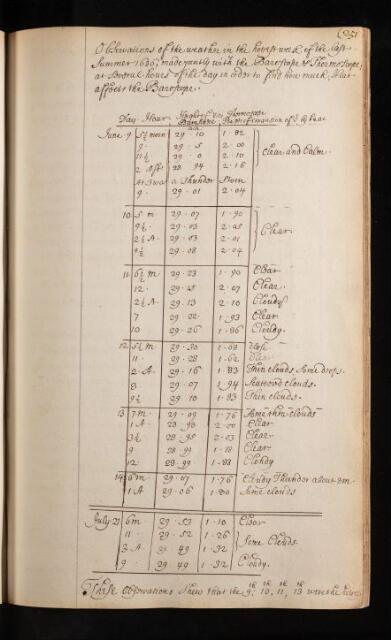 Observations of the weather in the hottest week of the last
Summer 1680; made cently with the Baroscope & Thermoscope,
at several hours of the day in order to find how much Heat
affects the Baroscope.
Day. Hour. Height of the Baroscope Thermoscope
June 9 5½ morn 29 . 10 1 . 82
9 . 29 . 5 2 . 00
11½ 29 . 0 2 . 10 Clear and Calm.
2 Aft 28 94 2 . 16
At 3 was a Thunder Storm
9 . 29 . 01 2 . 04
10 5 m 29 . 07 1 . 90
9½ . 29 . 03 2 . 05
2½ A. 29 . 03 2 . 01 Clear.
9½ 29 . 08 2 . 04
11 6½ m 29 . 23 1 . 90 Clear.
12 . 29 . 25 2 . 07 Clear.
2½ A. 29 . 13 2 . 10 Cloudy
7 29 . 22 1 . 93 Clear
10 29 . 26 1 . 86 Cloudy.
12 5½ m 29 . 30 1 . 68
11 . 29 . 28 1 . 62
2 . A. 29 . 16 1 . 83 Thin clouds some drops.
8 29 . 07 1 . 94 Scattered clouds.
9½ 29 . 10 1 . 83 Thin clouds.
13 7 m . 29 . 09 1 . 76 Some thin clouds
1 A 28 . 98 2 . 00 Clear
3½ 28 . 95 2 . 03 Clear
9 28 . 91 1 . 18 Clear
12 28 . 99 1 . 88 Cloudy
14 6 m . 29 . 07 1 . 76 Cloudy Thunder about 8 m.
1 A 29 . 06 1 . 80 Some clouds
July 21 6 m . 29 . 53 1 . 10 Clear
11 . 29 . 52 1 . 26
3 A . 29 49 1 . 32 Some Clouds
9 . 29 49 1 . 32 Cloudy.
These observations shew that the 9th, 10th, 11th, 13th were the